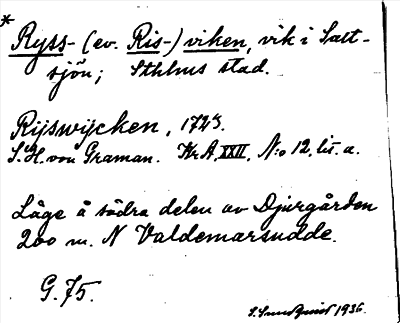 * Ryss- (ev. Ris-) viken, vik i Salt-
sjön; Sthlms stad.
Rijswijcken, 1725.
S. H. von Graman. Kr.A. XXII, N:o 12, lit. a.
Läge å södra delen av Djurgården
200 m. N Valdemarsudde.
G. 75.
1936.